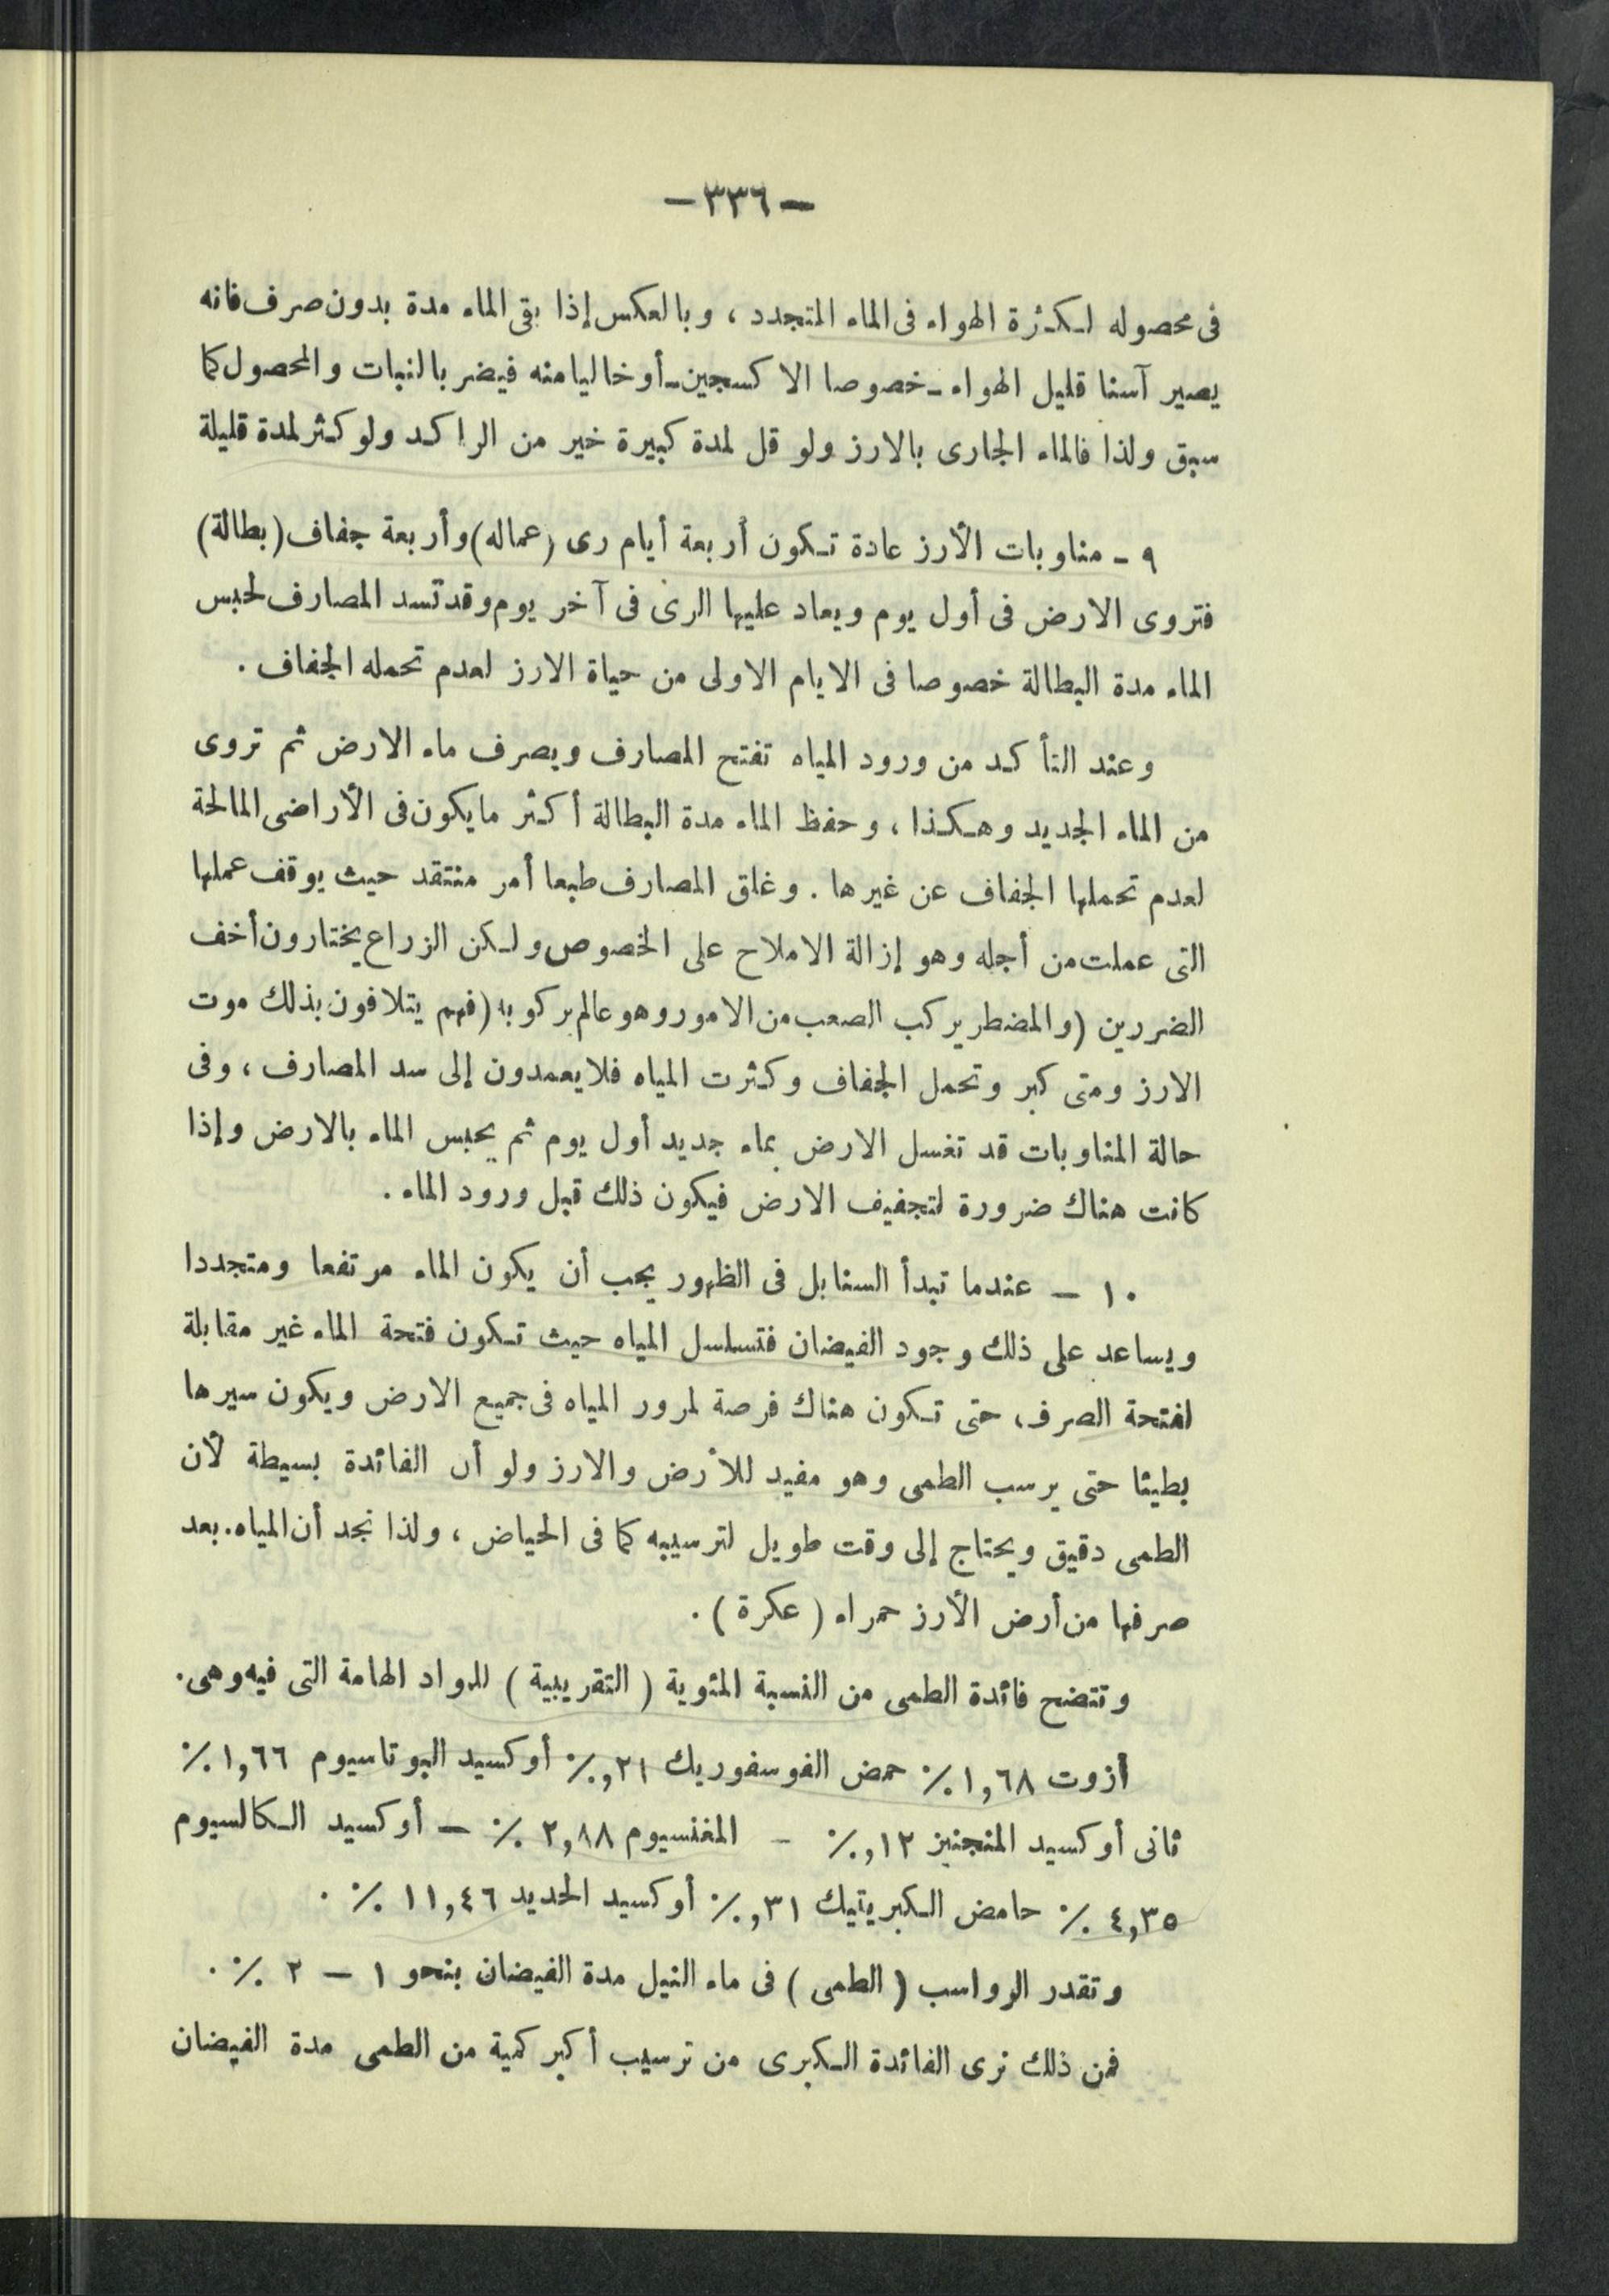 — ٣٣٦ —
فى محصوله لكثرة الهواء فى الماء المتجدد ، وبالعكس إذا بقى الماء مدة بدون صرف فانه
يصير آسنا قليل الهواء - خصوصا الاكسجين - أو خاليا منه فيضر بالنبات والمحصول كما
سبق ولذا فالماء الجارى بالارز ولو قل لمدة كبيرة خير من الراكد ولو كثر لمدة قليلة
٩ - مناوبات الأرز عادة تكون أربعة أيام رى (عماله) وأربعة جفاف (بطالة)
فتروى الارض فى أول يوم ويعاد عليها الرى فى آخر يوم وقد تسد المصارف لحبس
الماء مدة البطالة خصوصا فى الايام الاولى من حياة الارز لعدم تحمله الجفاف .
وعند التأكد من ورود المياه تفتح المصارف ويصرف ماء الارض ثم تروى
من الماء الجديد وهكذا ، وحفظ الماء مدة البطالة أكثر مايكون فى الأراضى المالحة
لعدم تحملها الجفاف عن غيرها . وغلق المصارف طبعا أمر منتقد حيث يوقف عملها
التى عملت من أجله وهو إزالة الاملاح على الخصوص ولكن الزراع يختارون أخف
الضررين (والمضطر يركب الصعب من الامور وهو عالم بركوبه (فهم يتلافون بذلك موت
الارز ومتى كبر وتحمل الجفاف وكثرت المياه فلا يعمدون إلى سد المصارف ، وفى
حالة المناوبات قد تغسل الارض بماء جديد أول يوم ثم يحبس الماء بالارض وإذا
كانت هناك ضرورة لتجفيف الارض فيكون ذلك قبل ورود الماء .
١٠ — عندما تبدأ السنابل فى الظهور يجب أن يكون الماء مرتفعا ومتجددا
ويساعد على ذلك وجود الفيضان فتسلسل المياه حيث تكون فتحة الماء غير مقابلة
لفتحة الصرف ، حتى تكون هناك فرصة لمرور المياه فى جميع الارض ويكون سيرها
بطيئا حتى يرسب الطمى وهو مفيد للأرض والارز ولو أن الفائدة بسيطة لأن
الطمى دقيق ويحتاج إلى وقت طويل لترسيبه كما فى الحياض ، ولذا نجد أن المياه . بعد
صرفها من أرض الأرز حمراء ( عكرة ) .
وتتضح فائدة الطمى من النسبة المئوية ( التقريبية ) للمواد الهامة التى فيه وهى .
أزوت ١,٦٨ ٪ حمض الفوسفوريك ٢١,٪ أوكسيد البوتاسيوم ١,٦٦ ٪
ثانى أوكسيد المنجنيز ١٢,٪ - المغنسيوم ٢,٨٨ ٪ — أوكسيد الكالسيوم
٤,٣٥ ٪ حامض الكبريتيك ٣١,٪ أوكسيد الحديد ١١,٤٦ ٪ .
وتقدر الرواسب ( الطمى ) فى ماء النيل مدة الفيضان بنحو ١ — ٢ ٪ .
فمن ذلك نرى الفائدة الكبرى من ترسيب أكبر كمية من الطمى مدة الفيضان